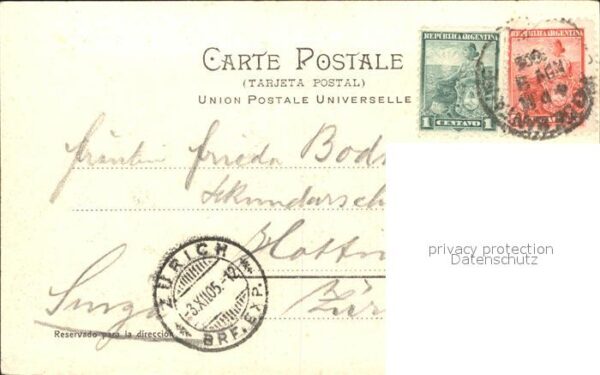 CARTE POSTALE
(TARJETA POSTAL)
UNION POSTALE UNIVERSELLE
REPUBLICA ARGENTINA
1 CENTAVO 1
REPUBLICA ARGENTINA
Fräulein Frieda Bod
Sekundarsch
Hottin
Zür
ZÜRICH
-3.XII.05.-12
BRF. EXP.
Reservado para la dirección
privacy protection
Datenschutz